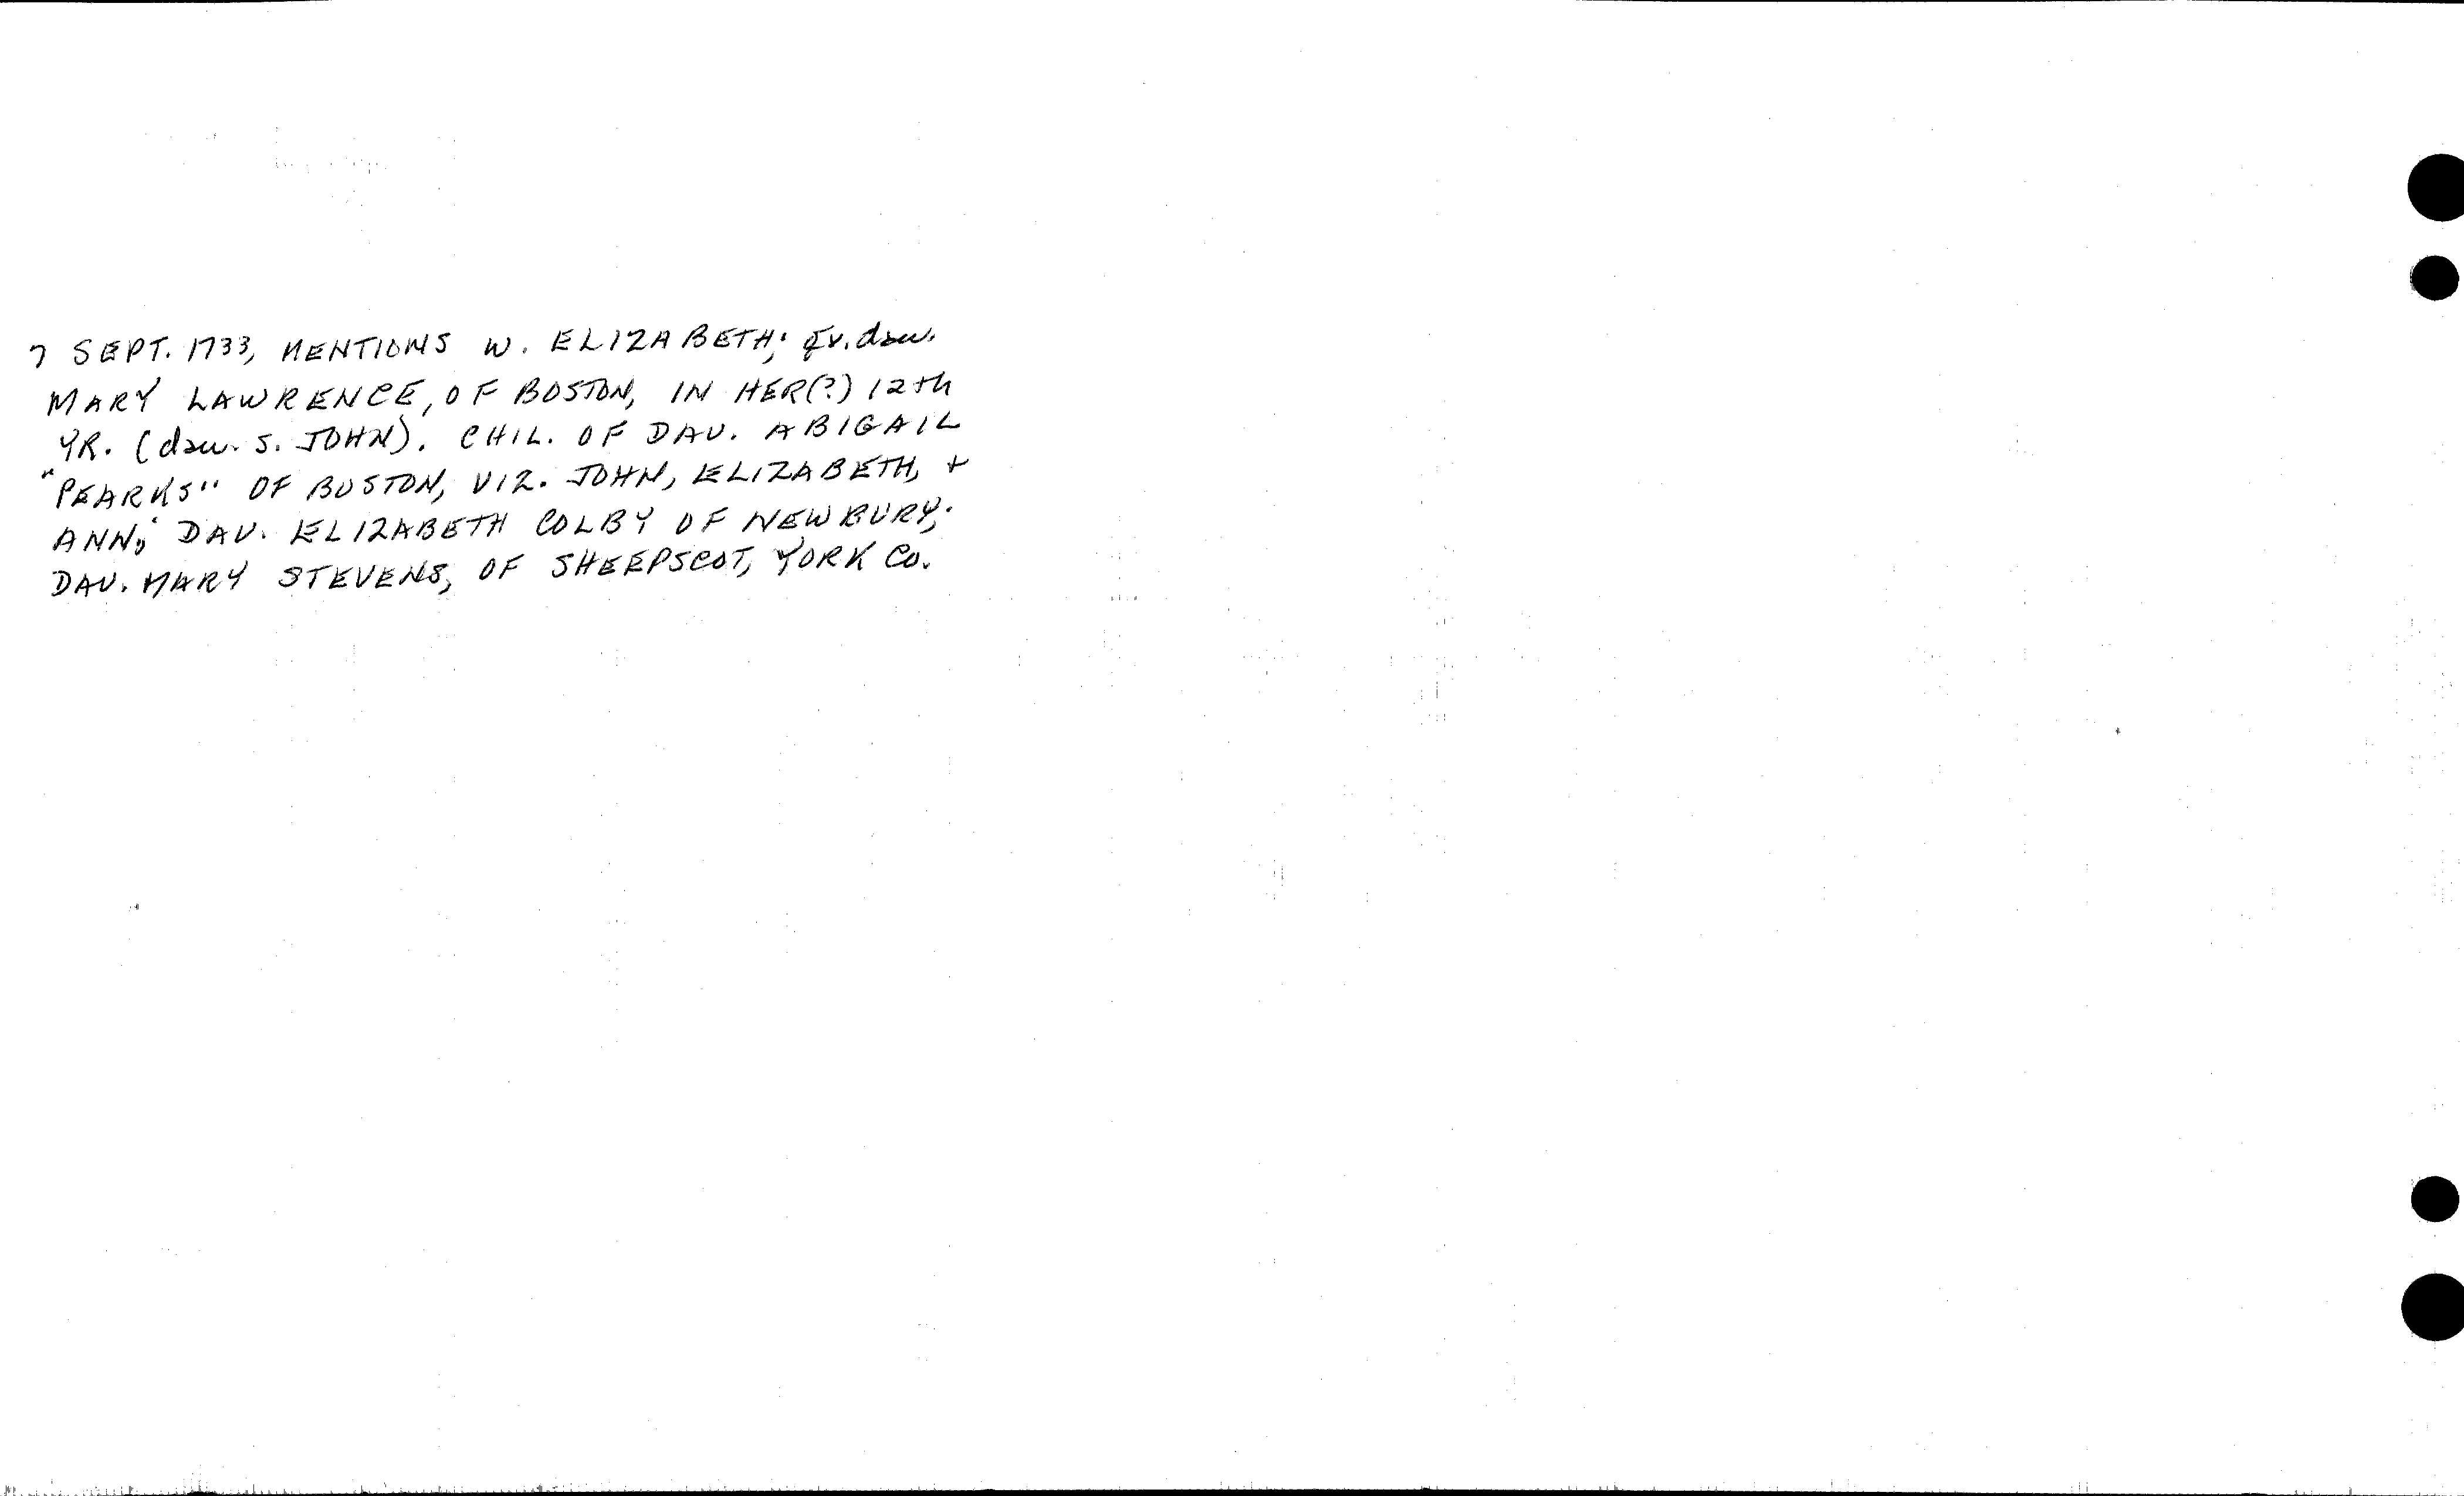 7 SEPT. 1733, MENTIONS W. ELIZABETH; gr. dau.
MARY LAWRENCE, OF BOSTON, IN HER(?) 12th
YR. (dau. S. JOHN). CHIL. OF DAU. ABIGAIL
"PEARKS" OF BOSTON, VIZ. JOHN, ELIZABETH, +
ANN; DAU. ELIZABETH COLBY OF NEWBURY;
DAU. MARY STEVENS, OF SHEEPSCOT, YORK CO.